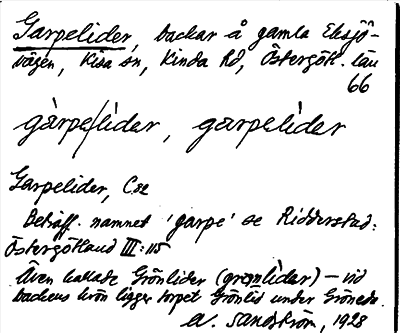 Garpelider, backar å gamla Eksjö-
vägen, Kisa sn, Kinda hd, Östergötl. län
66
gàrpelidər, garpelìdər
Garpelider, C82
Beträff. namnet 'garpe' se Ridderstad:
Östergötland III:115
Även kallade Grönlider (grønlìdər) – vid
backens krön ligger torpet Grönlid under Gröneda.
A. Sandström, 1928